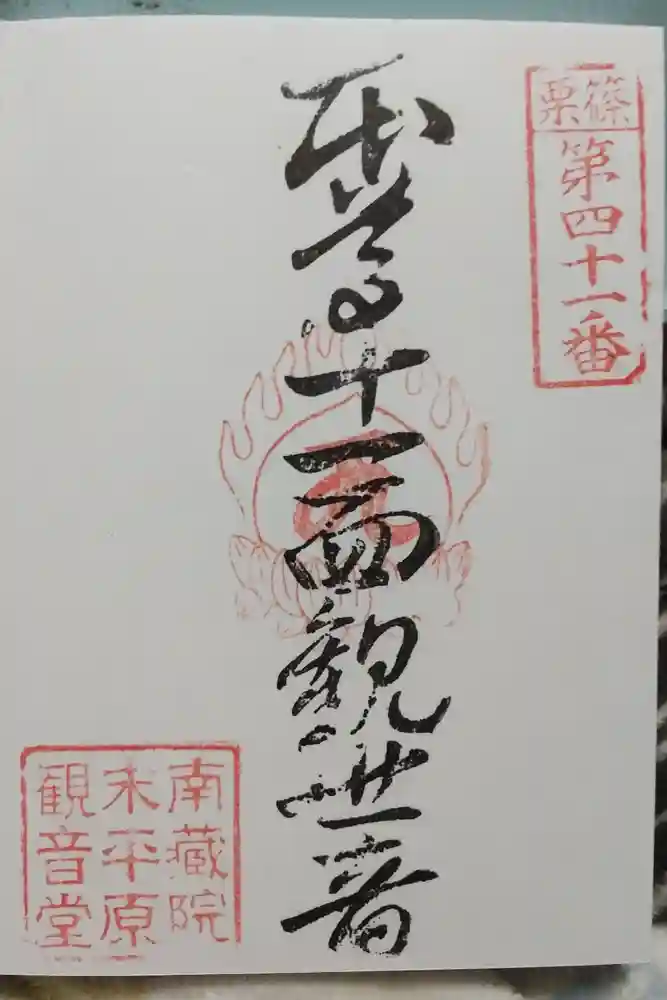 篠栗
第四十一番
本尊十一面観世音
南藏院
末平原
観音堂